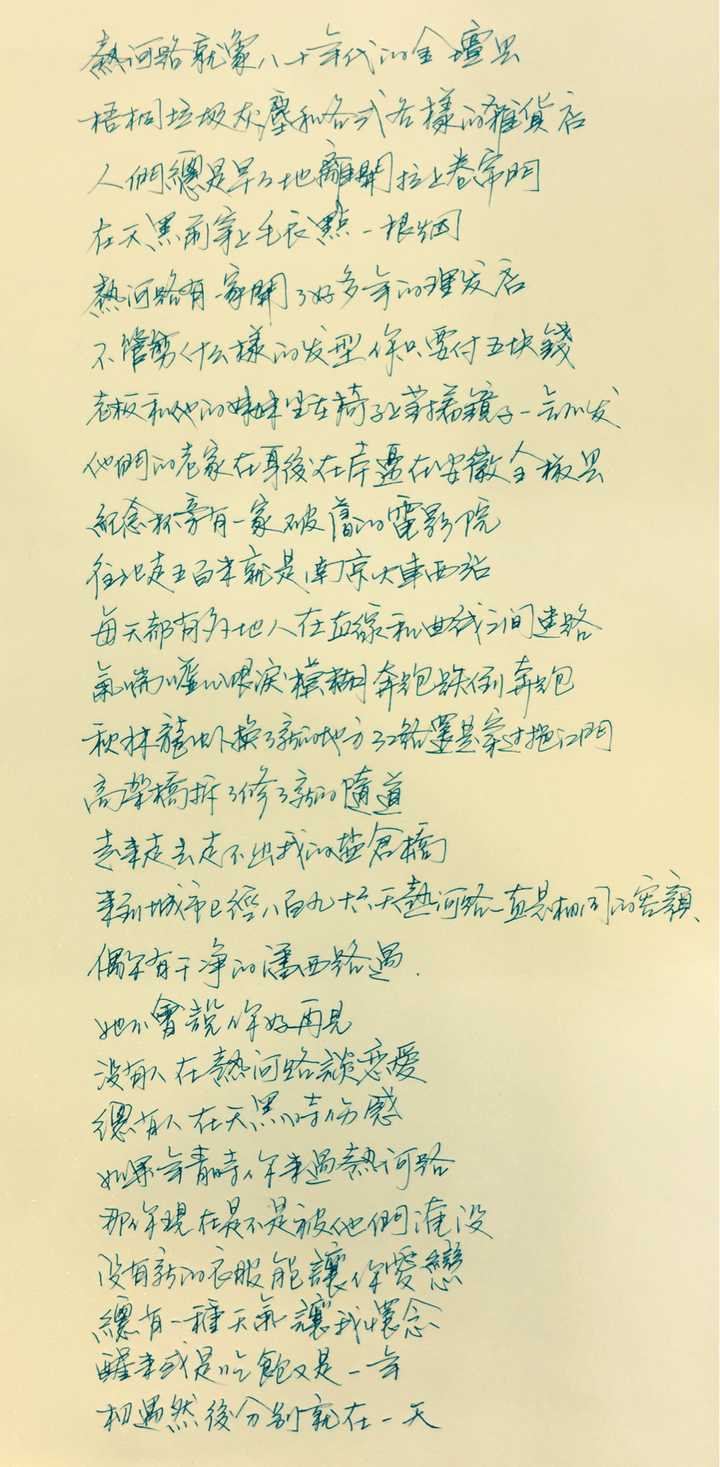 熱河路就像八十年代的金壇縣
梧桐垃圾灰塵和各式各樣的雜貨店
人們總是早早地離開拉上卷帘門
在天黑前穿上毛衣點一根烟
熱河路有一家開了好多年的理发店
不管剪什么樣的发型你只要付五块錢
老板和他的妹妹坐在椅子上對着鏡子一言不发
他們的老家在耳後在岸邊在安徽全椒县
紀念碑旁有一家破舊的電影院
往北走五百米就是南京火車西站
每天都有外地人在直線和曲线之间迷路
氣喘嘘嘘眼淚模糊奔跑跌倒奔跑
秋林龍蝦换了新的地方32路還是穿过挹江門
高架橋拆了修了新的隧道
走來走去走不出我的盐倉橋
來到城市已經八百九十六天熱河路一直是相同的容顏
偶尔有干净的潘西路過.
她不會説你好再見
没有人在熱河路談恋愛
總有人在天黑時伤感
如果年青時你來過熱河路
那你現在是不是被他們淹没
没有新的衣服能讓你愛戀
總有一種天氣讓我懷念
醒來或是吃飽又是一年
相遇然後分别就在一天